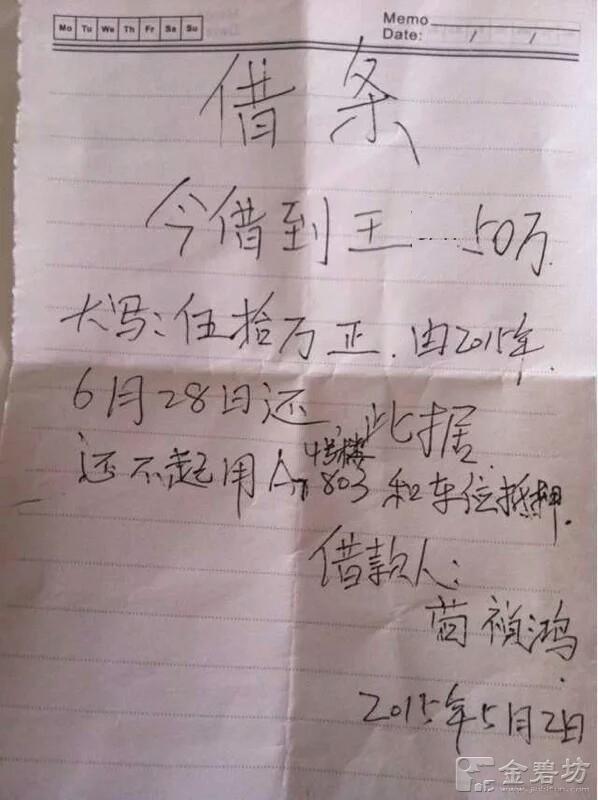 Mo Tu We Th Fr Sa Su
Memo
Date: / /
借条
今借到王 50万
大写:伍拾万正.由2015年
6月28日还,此据.
4号楼
还不起用A 803和车位抵押.
借款人:
苗祯鸿.
2015年5月2日
金碧坊